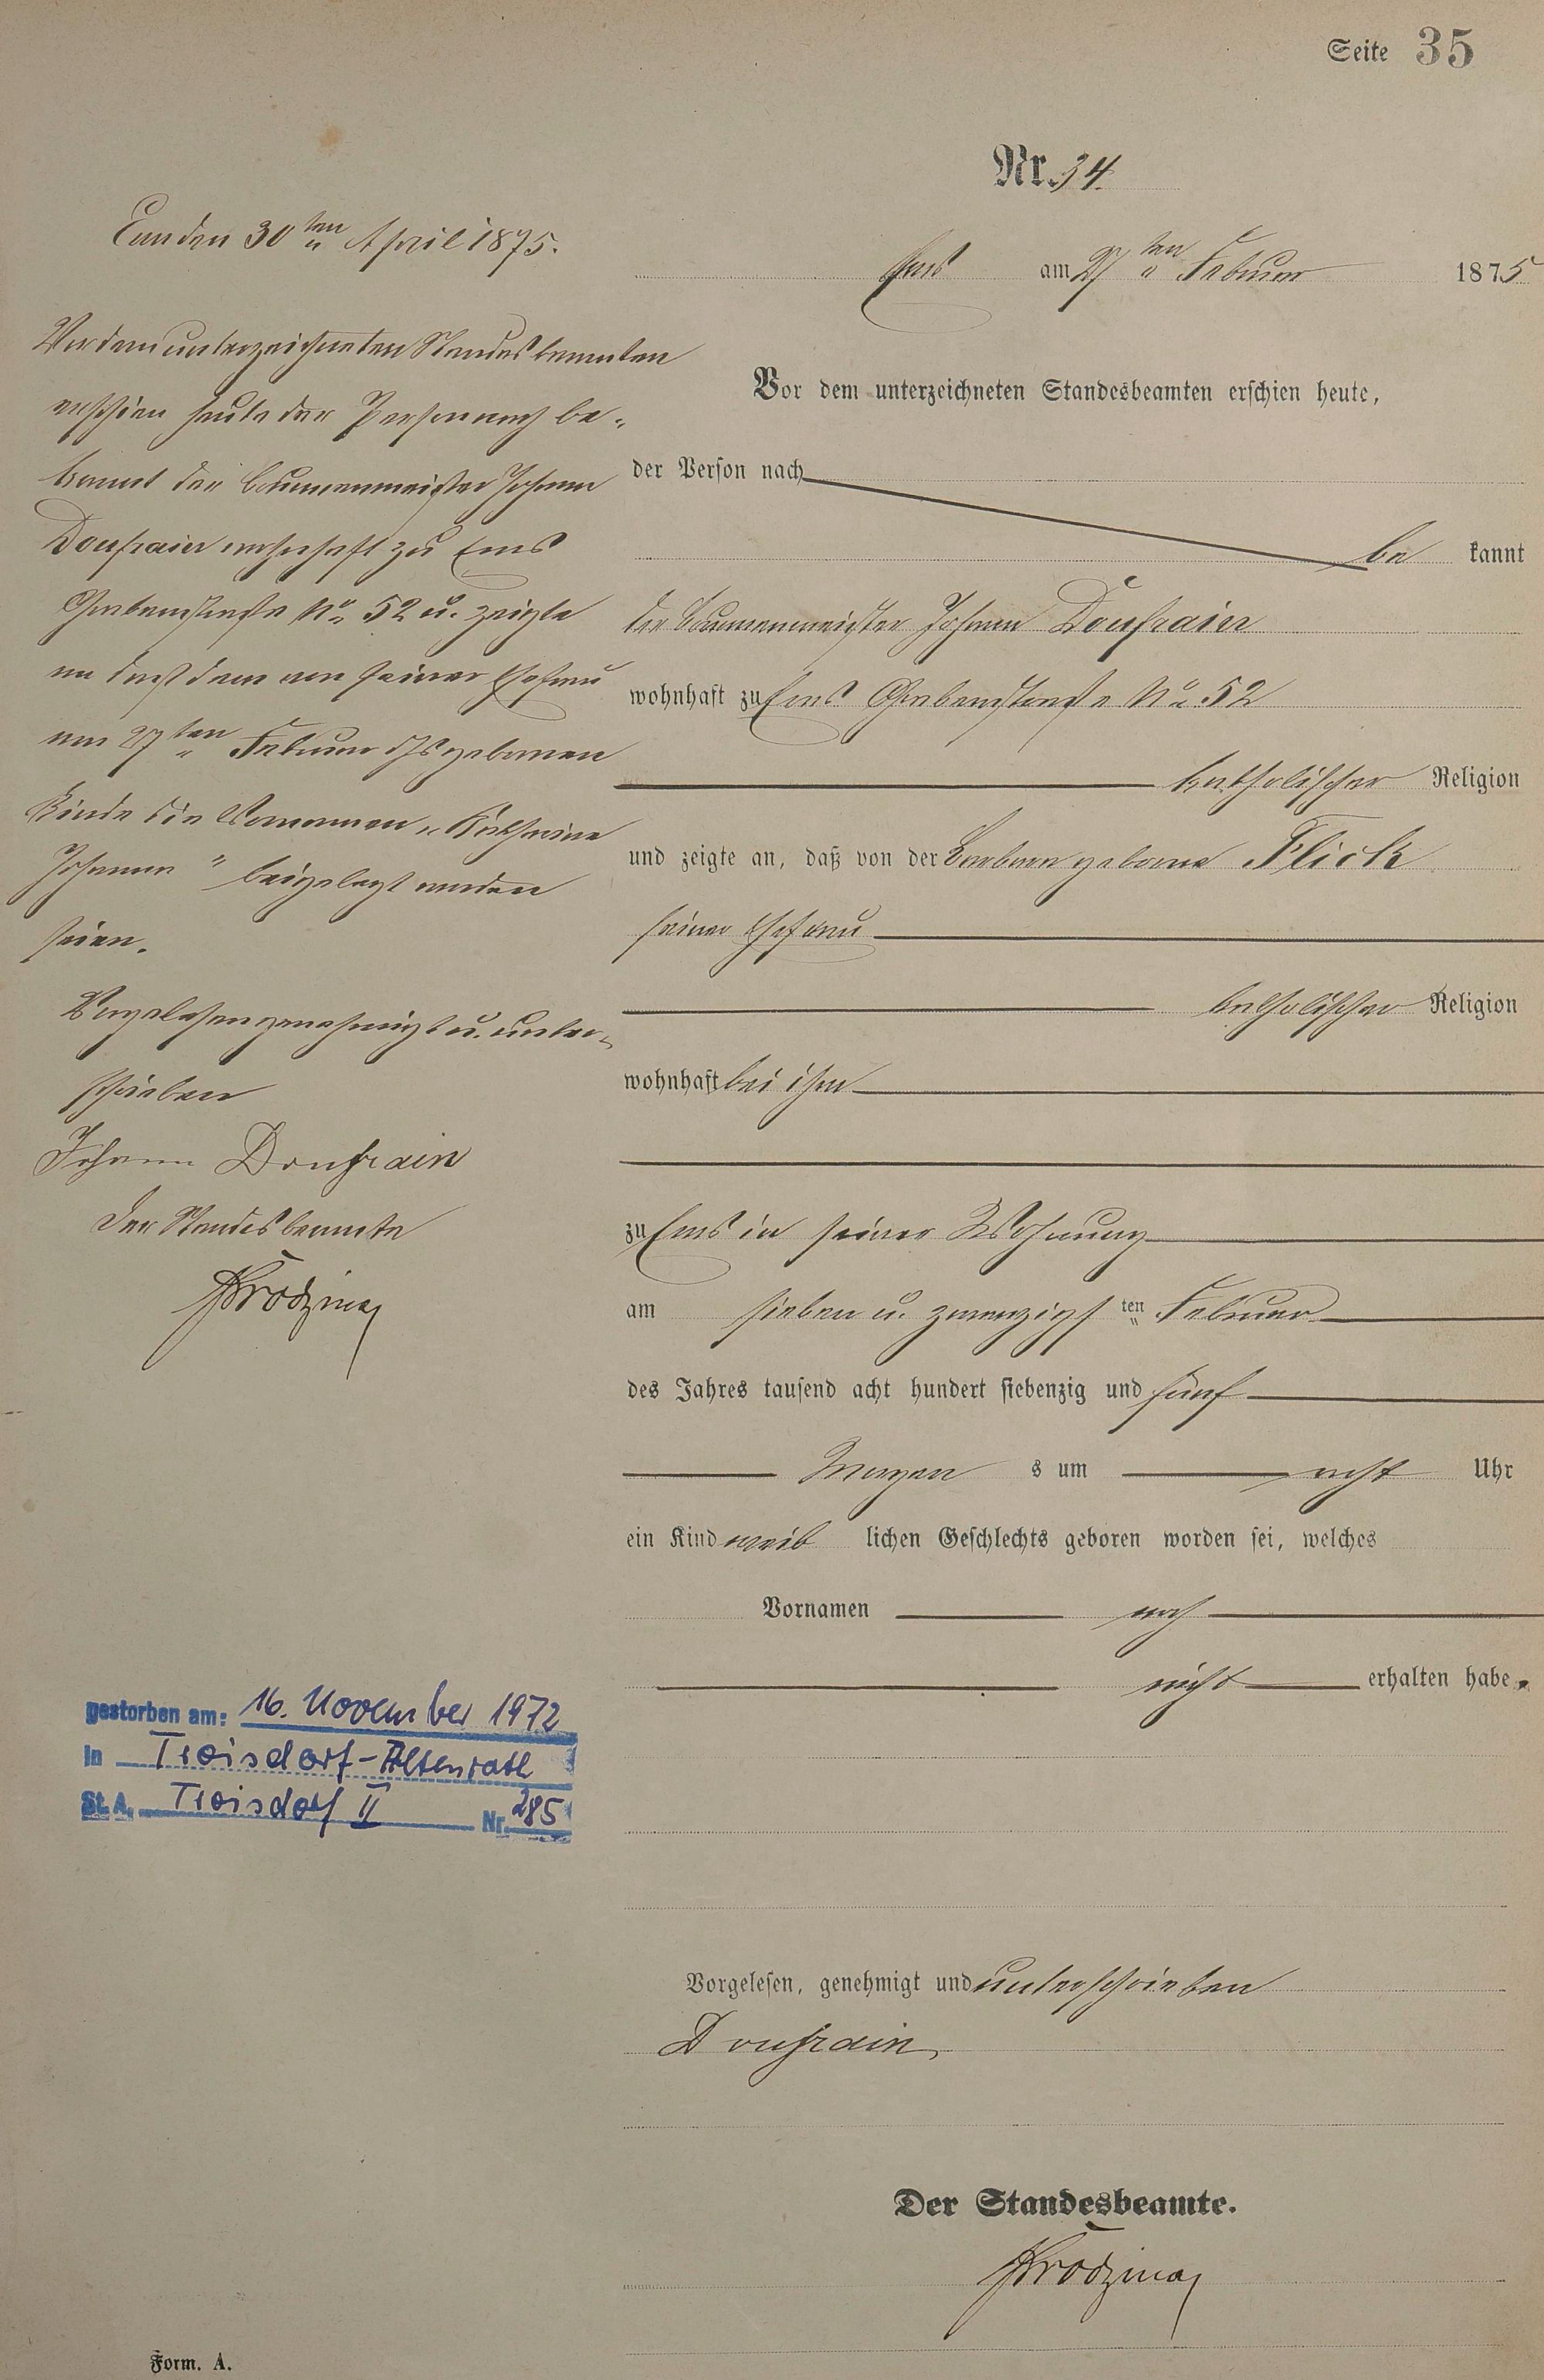 Seite 35
Nr. 34.
Ems den 30ten April 1875.
Vor dem unterzeichneten Standesbeamten
erschien heute der Person nach be-
kannt der Brunnenmeister Johann
Doufrain wohnhaft zu Ems
Grabenstraße No 52 u. zeigte
an daß dem von seiner Ehefrau
am 27ten Februar geborenen
Kinde die Vornamen „Katharine
Johanna" beigelegt worden
seien.
Vorgelesen genehmigt u. unter-
schrieben
Johann Doufrain
Der Standesbeamte
Ems am 27ten Februar 1875
Vor dem unterzeichneten Standesbeamten erschien heute,
der Person nach
be kannt
der Brunnenmeister Johann Doufrain
wohnhaft zu Ems Grabenstraße No 52
katholischer Religion
und zeigte an, daß von der Barbara geborne Flick
seiner Ehefrau
katholischer Religion
wohnhaft bei ihm
zu Ems in seiner Wohnung
am sieben u. zwanzigsten Februar
des Jahres tausend acht hundert siebenzig und fünf
Morgen s um acht Uhr
ein Kind weib lichen Geschlechts geboren worden sei, welches
Vornamen noch
nicht erhalten habe.
gestorben am: 16. November 1972
in Troisdorf-Altenrath
St. A. Troisdorf II Nr. 285
Vorgelesen, genehmigt und unterschrieben
Doufrain
Der Standesbeamte.
Form. A.